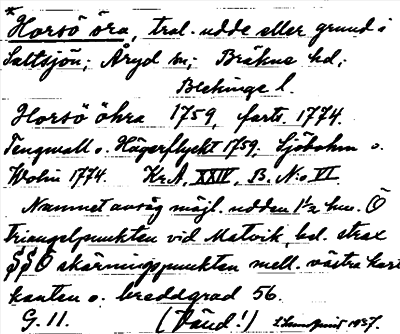 * Horsö öra, trol. udde eller grund i
Saltsjön; Åryd sn; Bräkne hd;
Blekinge l.
Horsö öhra 1759, farts. 1774.
Tengwall o. Hägerflyckt 1759, Sjöbohm o.
Wolin 1774. Kr.A, XXIV, B. N:o VI
Namnet avsåg möjl. udden 1½ hm. Ö
triangelpunkten vid Matvik, bel. strax
SSÖ skärningspunkten mell. västra kart
kanten o. breddgrad 56.
G. 11. (Vänd!)